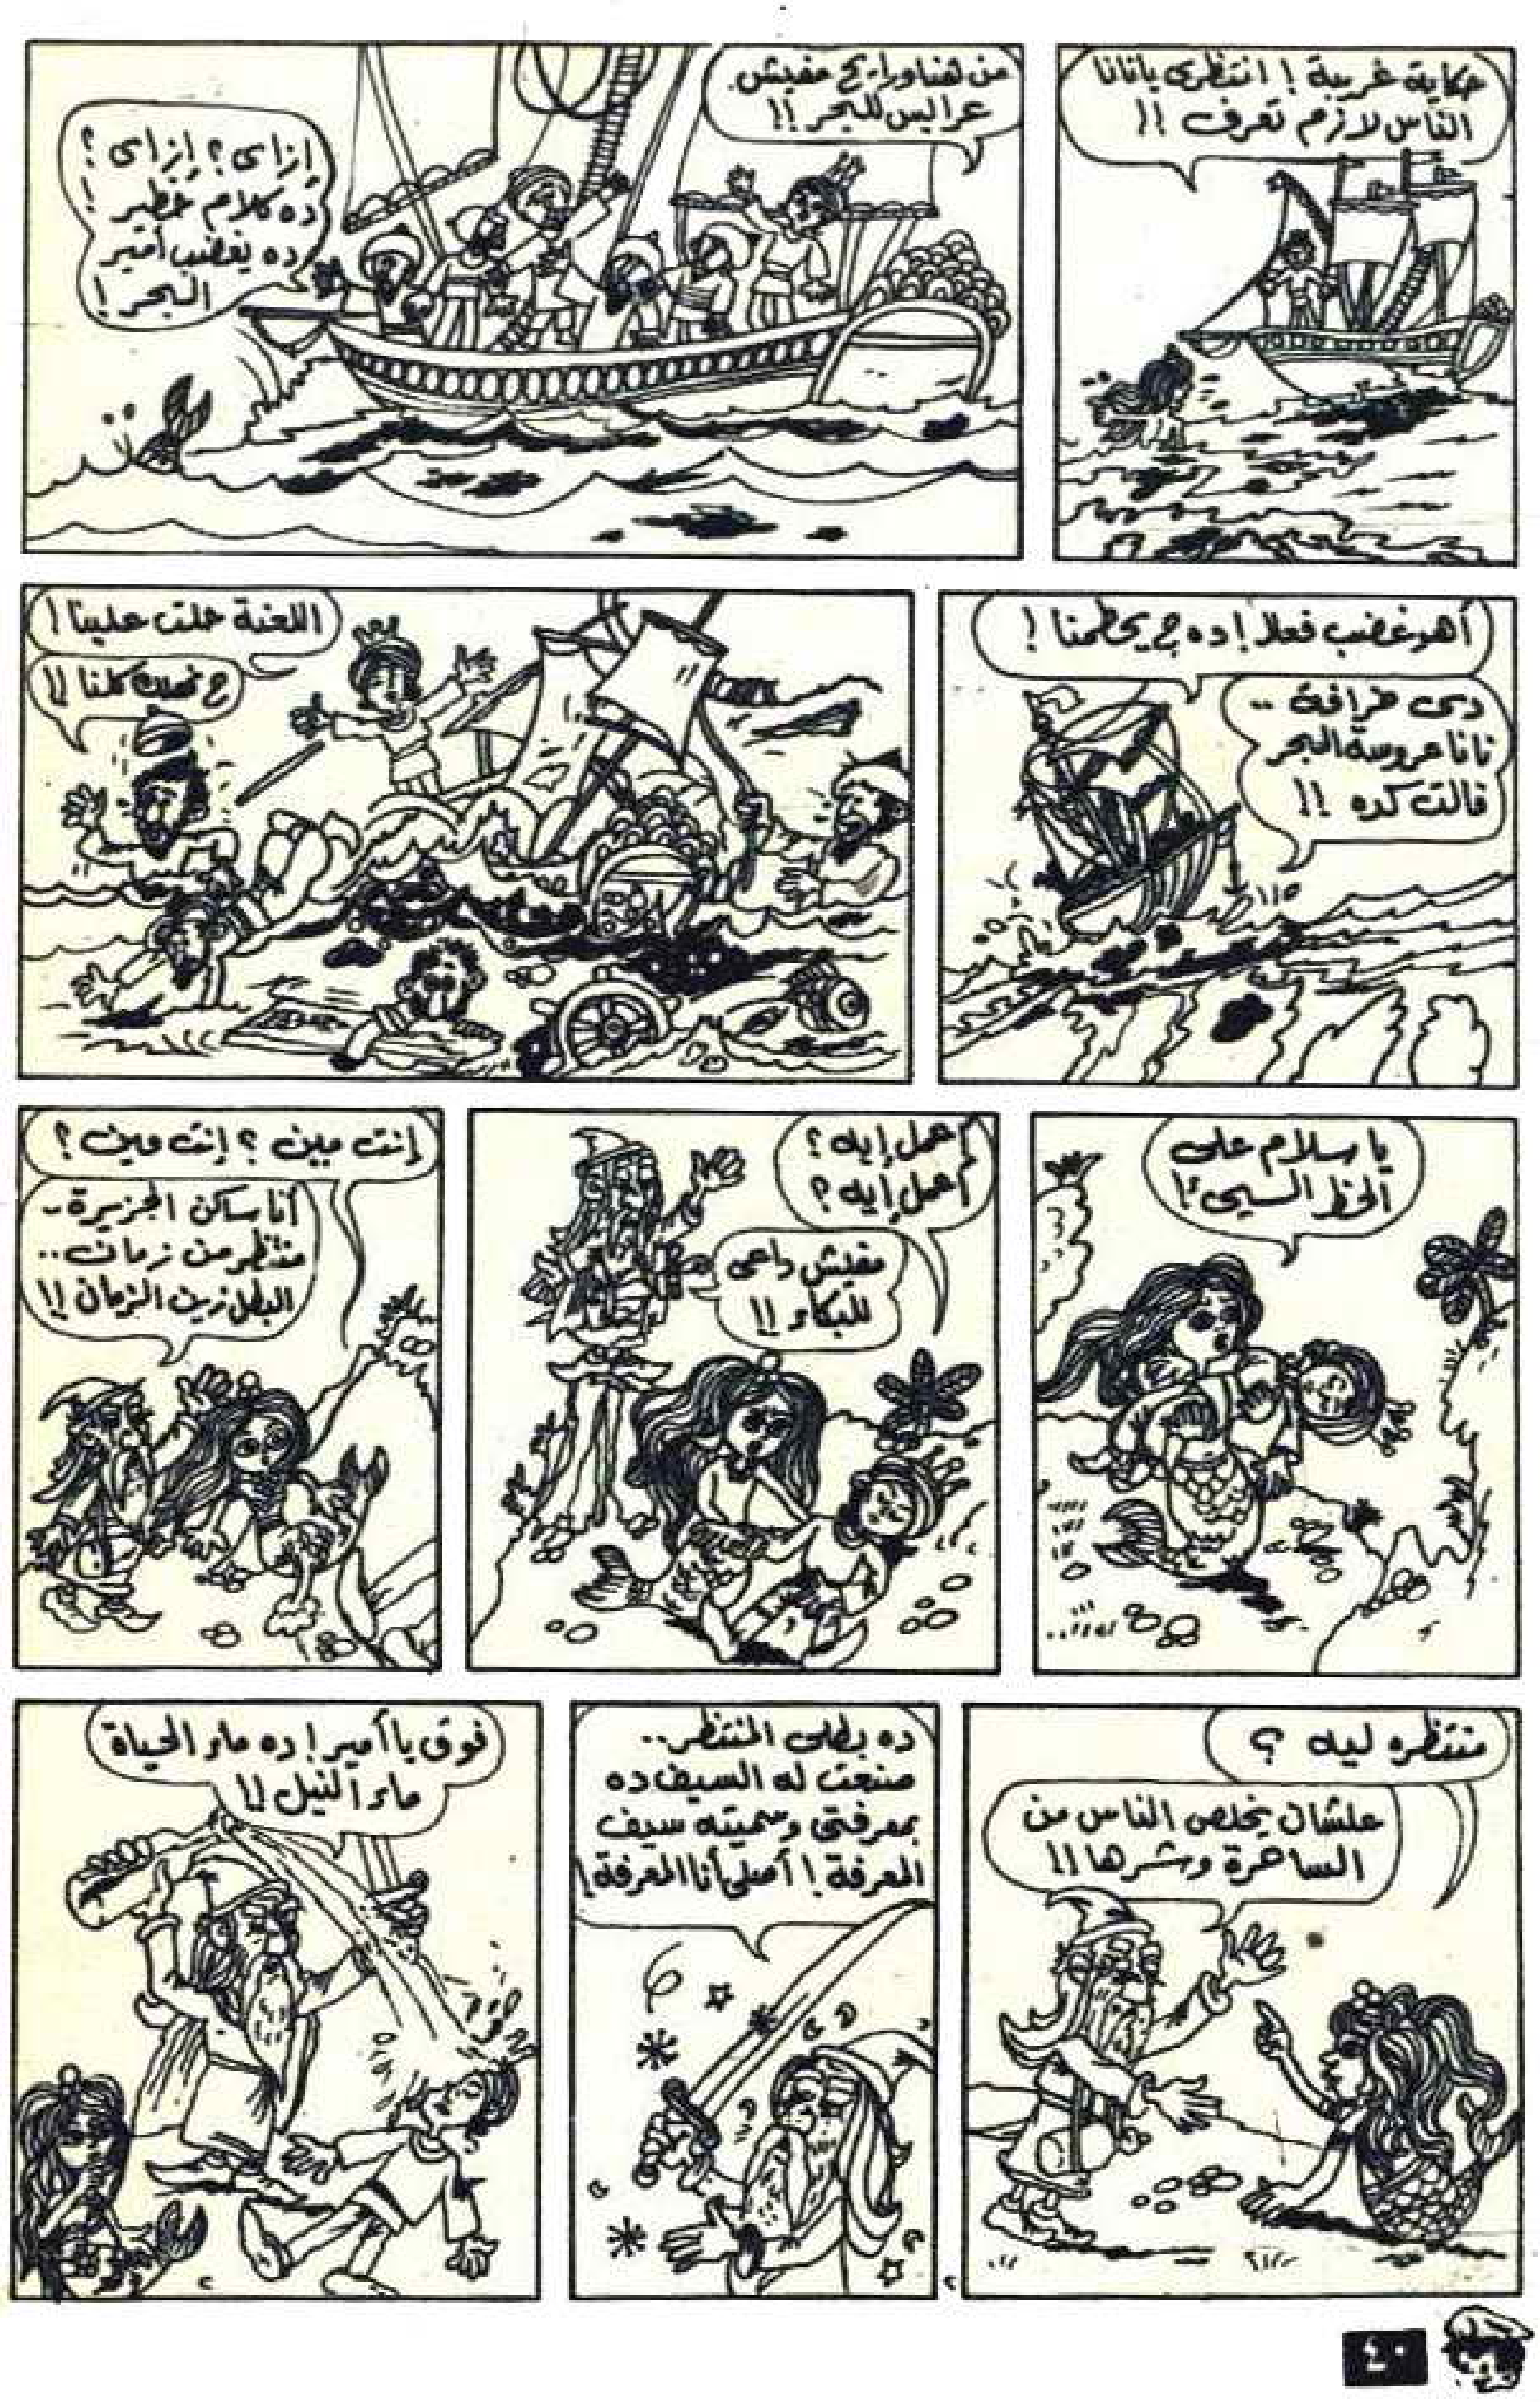 حكاية غريبة ! انتظرى يا نانا
الناس لازم تعرف !!
من هنا ورايح مفيش
عرايس للبحر !!
إزاى ؟ إزاى ؟
ده كلام خطير !
ده يغضب أمير
البحر !
أهو غضب فعلا ! ده ح يحطمنا !
دى خرافة ..
نانا عروسة البحر
قالت كده !!
اللعنة حلت علينا !
ح نهلك كلنا !!
يا سلام على
الحظ السيئ !!
أعمل إيه ؟
أعمل إيه ؟
مفيش داعى
للبكاء !!
إنت مين ؟ إنت مين ؟
أنا ساكن الجزيرة ..
منتظر من زمان ..
البطل زين الزمان !!
منتظره ليه ؟
علشان يخلص الناس من
الساحرة وشرها !!
ده بطلى المنتظر ..
صنعت له السيف ده
بمعرفتى وسميته سيف
المعرفة ! أصلى أنا المعرفة !
فوق يا أمير ! ده ماء الحياة
ماء النيل !!
٤٠